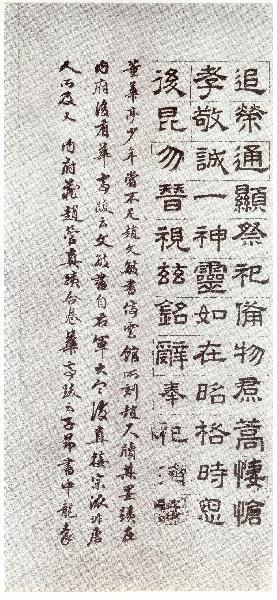 追榮通顯祭祀備物焄蒿悽愴
孝敬誠一神靈如在昭格時思
後昆勿替視茲銘辭奉祀
董華亭少年嘗不足趙文敏書停雲館所刻趙人牘其墨蹟在
內府後有華亭跋云文敏書自右軍大令後直接宗派非唐
人所及又內府藏趙管真蹟合卷華亭跋云子昂書中龍象